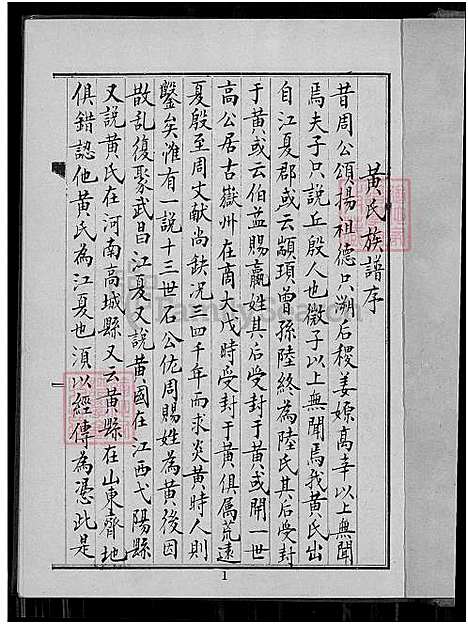 黃氏族譜序
昔周公頌揚祖德只溯后稷姜嫄高辛以上無聞
焉夫子只說丘殷人也微子以上無聞焉我黃氏出
自江夏郡或云顓頊曾孫陸終為陸氏其后受封
于黃或云伯益賜嬴姓其后受封于黃或開一世
高公居古嶽州在商大戊時受封于黃俱属荒遠
夏殷至周文献尚缺况三四千年而求炎黃時人則
鑿矣惟有一說十三世石公佐周賜姓為黃後因
散乱復聚武昌江夏又說黃國在江西弋陽縣
又說黃氏在河南高城縣又云黃縣在山東齊地
俱錯認他黃氏為江夏也湏以經傳為憑此是
1